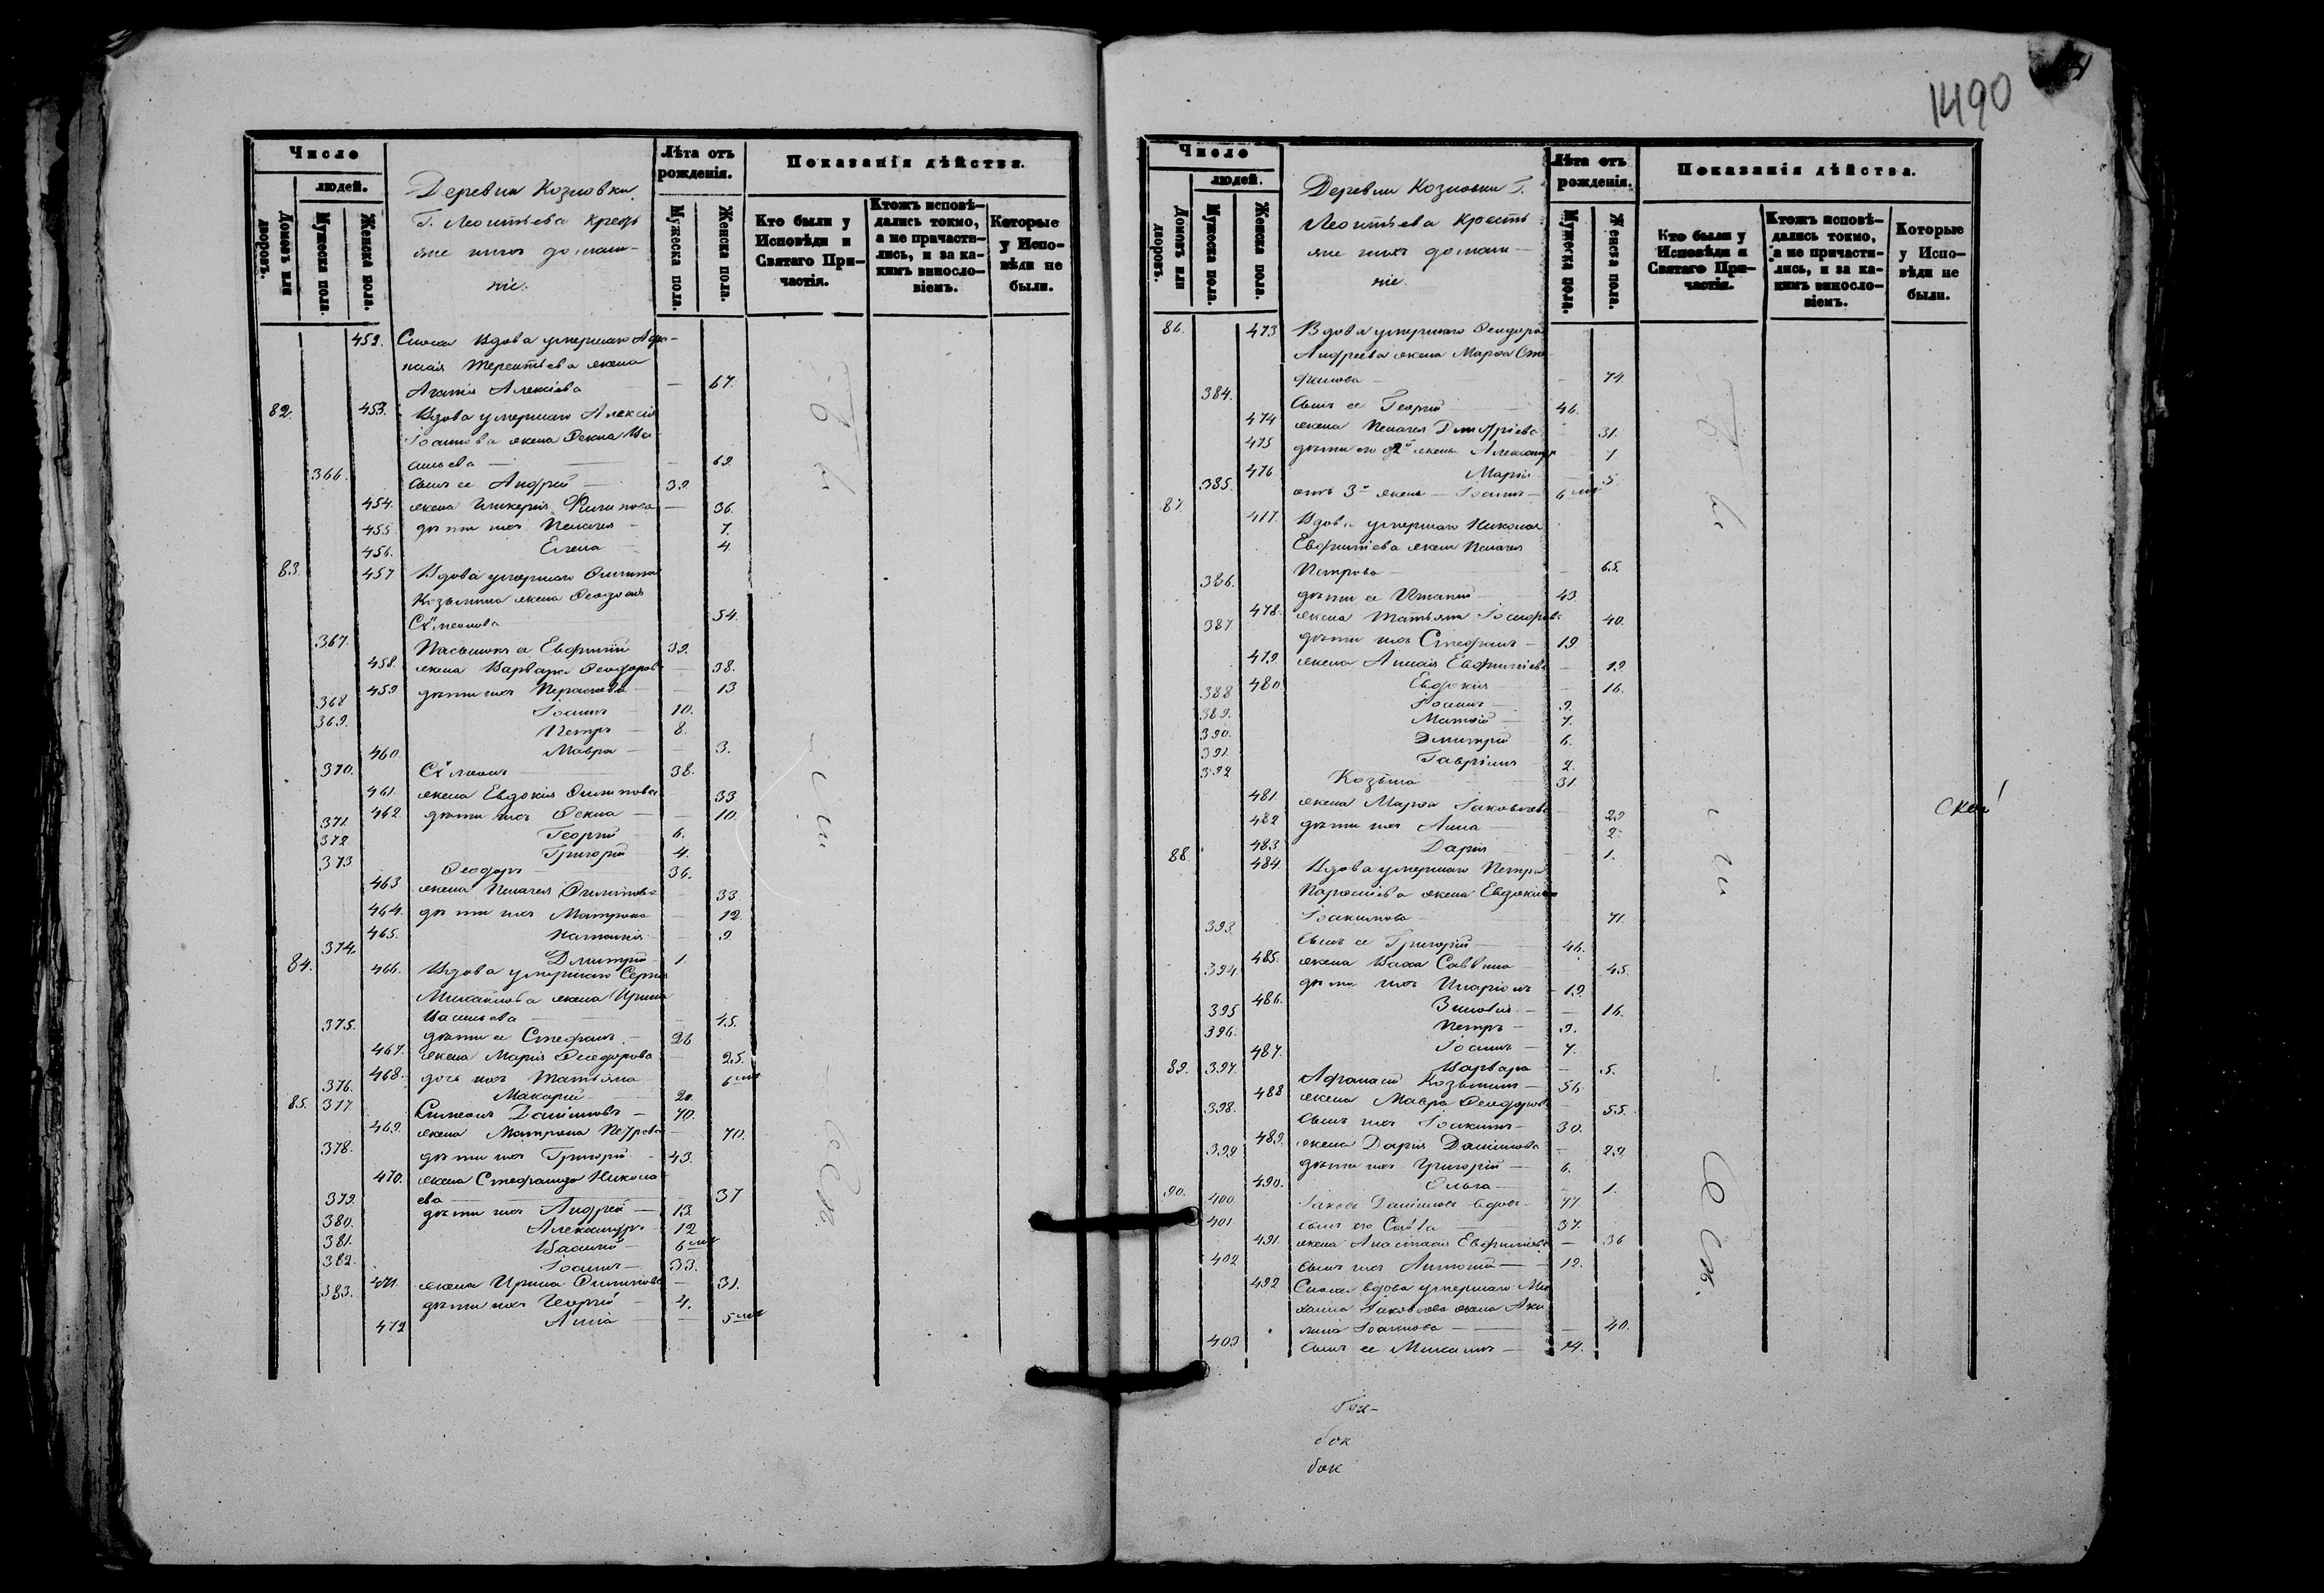 1490
Число
людей.
Домовъ или дворовъ.
Мужеска пола.
Женска пола.
Деревни Козловки
Г. Леонтьева кресть
яне
ніе.
Лѣта отъ рожденія.
Мужеска пола.
Женска пола.
Показанія дѣйства.
Кто были у Исповѣди и Святаго Причастія.
Ктожъ исповѣ-
дались токмо,
а не причасти-
лись, и за ка-
кимъ винosло-
віемъ.
Которые
у Испо-
вѣди не
были.
452. Вдова умершаго Афа-
насія Терентьева жена
Агапія Алексіева — 67.
82. 453. Вдова умершаго Алексія
Іоаннова жена Ѳекла Ва
сильева — 62.
366. Сынъ ее Андрей — 32.
454. жена Гликерія Филипова — 36.
455 дѣти ихъ Пелагея — 7.
456. Елена — 4.
83. 457 Вдова умершаго Филипа
Козьмина жена Ѳеодосія
Сѵмеонова 54.
367. Пасынокъ ея Евфимій 39.
458. жена Варвара Ѳеодорова — 38.
459 дѣти ихъ Параскева — 13
368 Іоаннъ — 10.
369. Петръ — 8.
460. Мавра — 3.
370. Сѵмеонъ 38.
461. жена Евдокія Филипова 33
462. дѣти ихъ Ѳекла — 10.
371. Георгій 6.
372. Григорій — 4.
373 Ѳеодоръ — 36.
463 жена Пелагея Филипова 33
464. дѣти ихъ Матрона 12.
465. Наталія 9
374. Дмитрій 1.
84. 466. Вдова умершаго Сергія
Михайлова жена Ирина
Васильева 45.
375. дѣти ее Стефанъ — 26
467. жена Марія Ѳеодорова 25.
468. дочь ихъ Татьяна 6 мѣс
376. Макарій 20.
85. 377. Симеонъ Даниловъ — 70.
469. жена Матрона Петрова 70.
378. дѣти ихъ Григорій — 43.
470. жена Стефанида Никола
ева — 37
379. дѣти ихъ Андрей — 13.
380. Александръ 12
381. Василій — 6 мѣс
382. Іоаннъ — 33.
471. жена Ирина Филипова — 31.
383. дѣти ихъ Георгій — 4.
472 Анна — 5 мѣс
были
Всѣ
Число
людей.
Домовъ или дворовъ.
Мужеска пола.
Женска пола.
Деревни Козловки Г.
Леонтьева кресть
яне
ніе.
Лѣта отъ рожденія.
Мужеска пола.
Женска пола.
Показанія дѣйства.
Кто были у Исповѣди и Святаго Причастія.
Ктожъ исповѣ-
дались токмо,
а не причасти-
лись, и за ка-
кимъ винocло-
віемъ.
Которые
у Испо-
вѣди не
были.
86. 473 Вдова умершаго Ѳеодора
Андреева жена Марѳа Сте
фанова — 74.
384. Сынъ ее Георгій 46.
474 жена Пелагея Димитріева 31.
475 дѣти его отъ 2й жены Александра 7
476 Марія — 5.
385. отъ 3й жены — Іоаннъ — 6 мѣс
87. 477. Вдова умершаго Николая
Евфиміева жена Пелагея
Петрова — 65.
386. дѣти ее 43.
478. жена Татьяна Іосифова 40.
387 дѣти ихъ Стефанъ — 19
479. жена Евфиміева — 19
480 Евдокія — 16.
388 Іоаннъ — 9.
389. Матѳій — 7.
390. Дмитрій 6.
391. Гавріилъ — 2.
392 Козьма 31
481. жена Марѳа Іаковлева 29
482 дѣти ихъ Анна — 2
483. Дарія — 1.
88. 484. Вдова умершаго Петра
жена Евдокія
Іоакимова — 71.
393. Сынъ ее Григорій — 46.
485. жена Васса Саввина — 45.
394. дѣти ихъ Иларіонъ — 19
486. Зиновія — 16.
395 Петръ — 9.
396. Іоаннъ — 7.
487. Варвара — 5.
89. 397. Афанасій Козьминъ — 56
488 жена Мавра Ѳеодорова 55.
398. Сынъ ихъ Іоакимъ — 30.
489. жена Дарія Данилова — 29
399 дѣти ихъ Григорій — 6.
490. Ольга — 1.
90. 400. Іаковъ Даниловъ вдовъ 77
401 Сынъ его Савва 37.
491. жена Анастасія Евфиміева — 36
402 Сынъ ихъ Антоній — 12.
492 Снoха вдова умершаго Ми
хаила Іаковлева жена Аку
лина Іоакимова — 40.
403 Сынъ ее Михаилъ — 14.
были
Всѣ.
ской
бок
бок
бок